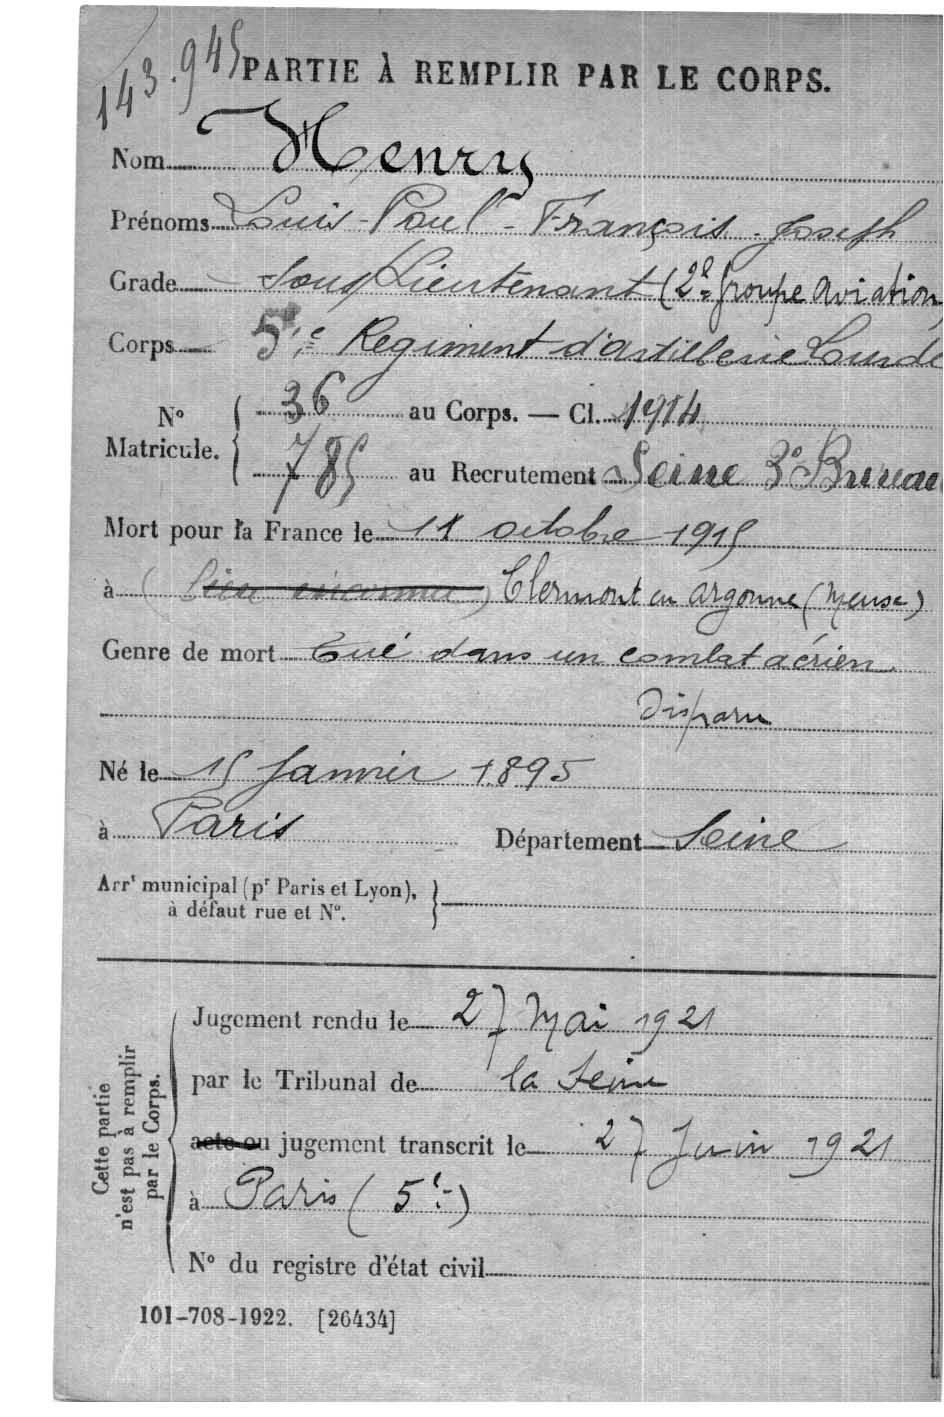 143.945
PARTIE À REMPLIR PAR LE CORPS.
Nom Henry
Prénoms Louis-Paul-François-Joseph
Grade Sous Lieutenant (2e Groupe Aviation)
Corps 5e Regiment d'artillerie Lourde
N° Matricule. { 36 au Corps. — Cl. 1914
785 au Recrutement Seine 3e Bureau
Mort pour la France le 11 octobre 1915
à (lieu inconnu) Clermont en argonne (Meuse)
Genre de mort Tué dans un combat aérien.
Disparu
Né le 15 Janvier 1895
à Paris Département Seine
Arrt municipal (pr Paris et Lyon),
à défaut rue et N°.
Cette partie
n'est pas à remplir
par le Corps.
Jugement rendu le 27 Mai 1921
par le Tribunal de la Seine
acte ou jugement transcrit le 27 Juin 1921
à Paris (5e)
N° du registre d'état civil
101-708-1922. [26434]